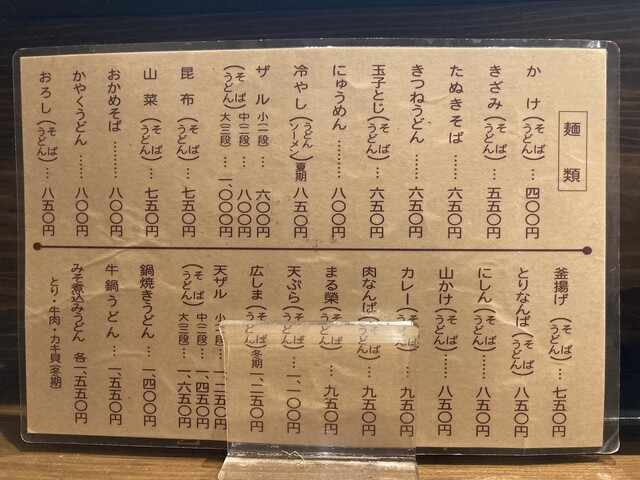 麺類
かけ(そばうどん)…四〇〇円
きざみ(そばうどん)…五五〇円
たぬきそば………六五〇円
きつねうどん………六五〇円
玉子とじ(そばうどん)…六五〇円
にゅうめん………八〇〇円
冷やし(うどんソーメン)夏期 八五〇円
ザル 小(一段)…六〇〇円
(そばうどん) 中(二段)…八〇〇円
大(三段)…一、〇〇〇円
昆布(そばうどん)…七五〇円
山菜(そばうどん)…七五〇円
おかめそば………八〇〇円
かやくうどん………八〇〇円
おろし(そばうどん)…八五〇円
釜揚げ(そばうどん)…七五〇円
とりなんば(そばうどん)…八五〇円
にしん(そばうどん)………八五〇円
山かけ(そばうどん)………八五〇円
カレー(そばうどん)…九五〇円
肉なんば(そばうどん)…九五〇円
まる榮(そばうどん)…九五〇円
天ぷら(そばうどん)…一、一〇〇円
広しま(そばうどん)冬期 一、二五〇円
天ザル 小(一段)…一、二五〇円
(そばうどん) 中(二段)…一、四五〇円
大(三段)…一、六五〇円
鍋焼きうどん…一、四〇〇円
牛鍋うどん…一、五五〇円
みそ煮込みうどん 各一、五五〇円
とり・牛肉・カキ貝(冬期)